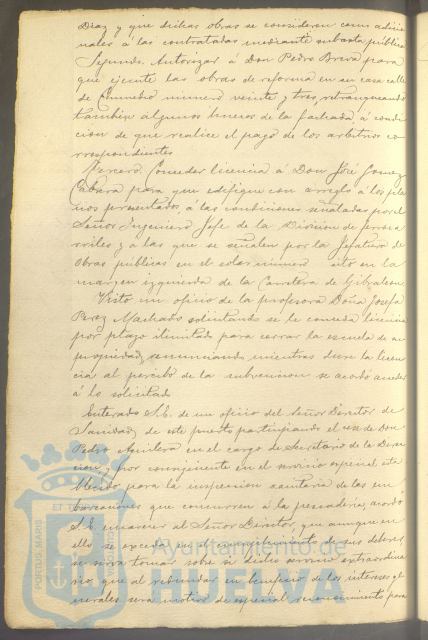 Diaz y que dichas obras se consideren como adicio
nales á las contratadas mediante subasta pública
Segundo. Autorizar á Don Pedro Brera para
que ejecute las obras de reforma en su casa calle
de número veinte y tres, retranqueando
tambien algunos huecos de la fachada, á condi
cion de que realice el pago de los arbitrios co
rrespondientes
Tercero. Conceder licencia á Don José Gomez
para que edifique con arreglo á los pla
nos presentados, á las condiciones señaladas por el
Señor Ingeniero Jefe de la Division de ferroca
rriles y á las que se señalen por la Jefatura de
Obras públicas en el solar número sito en la
margen izquierda de la Carretera de Gibraleon
Visto un oficio de la profesora Doña Josefa
Perez Machado solicitando se le conceda licencia
por plazo ilimitado para cerrar la escuela de su
propiedad, renunciando mientras dure la licen
cia, al percibo de la subvencion se acordó acceder
á lo solicitado
Enterado S.E. de un oficio del Señor Director de
Sanidad de este puerto participando el cese de Don
Pedro Aguilera en el cargo de Secretario de la Direc
cion y por consiguiente en el servicio especial esta
blecido para la inspeccion sanitaria de las em
barcaciones que concurren á la pescaderia, acordó
S.E. al Señor Director, que aunque en
ello se exceda en el cumplimiento de sus deberes
se sirva tomar sobre sí dicho servicio extraordina
rio, que al redundar en beneficio de los intereses ge
nerales será motivo de especial reconocimiento para
PORTUS MARIS ET TERRAE CUSTODIA
Ayuntamiento de
HUELVA